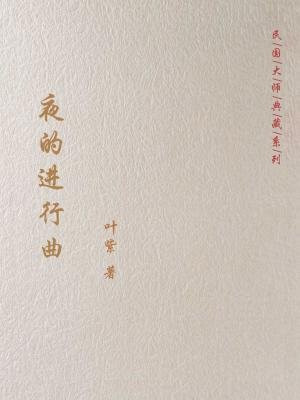 民国大师典藏系列
夜的进行曲
叶紫 著